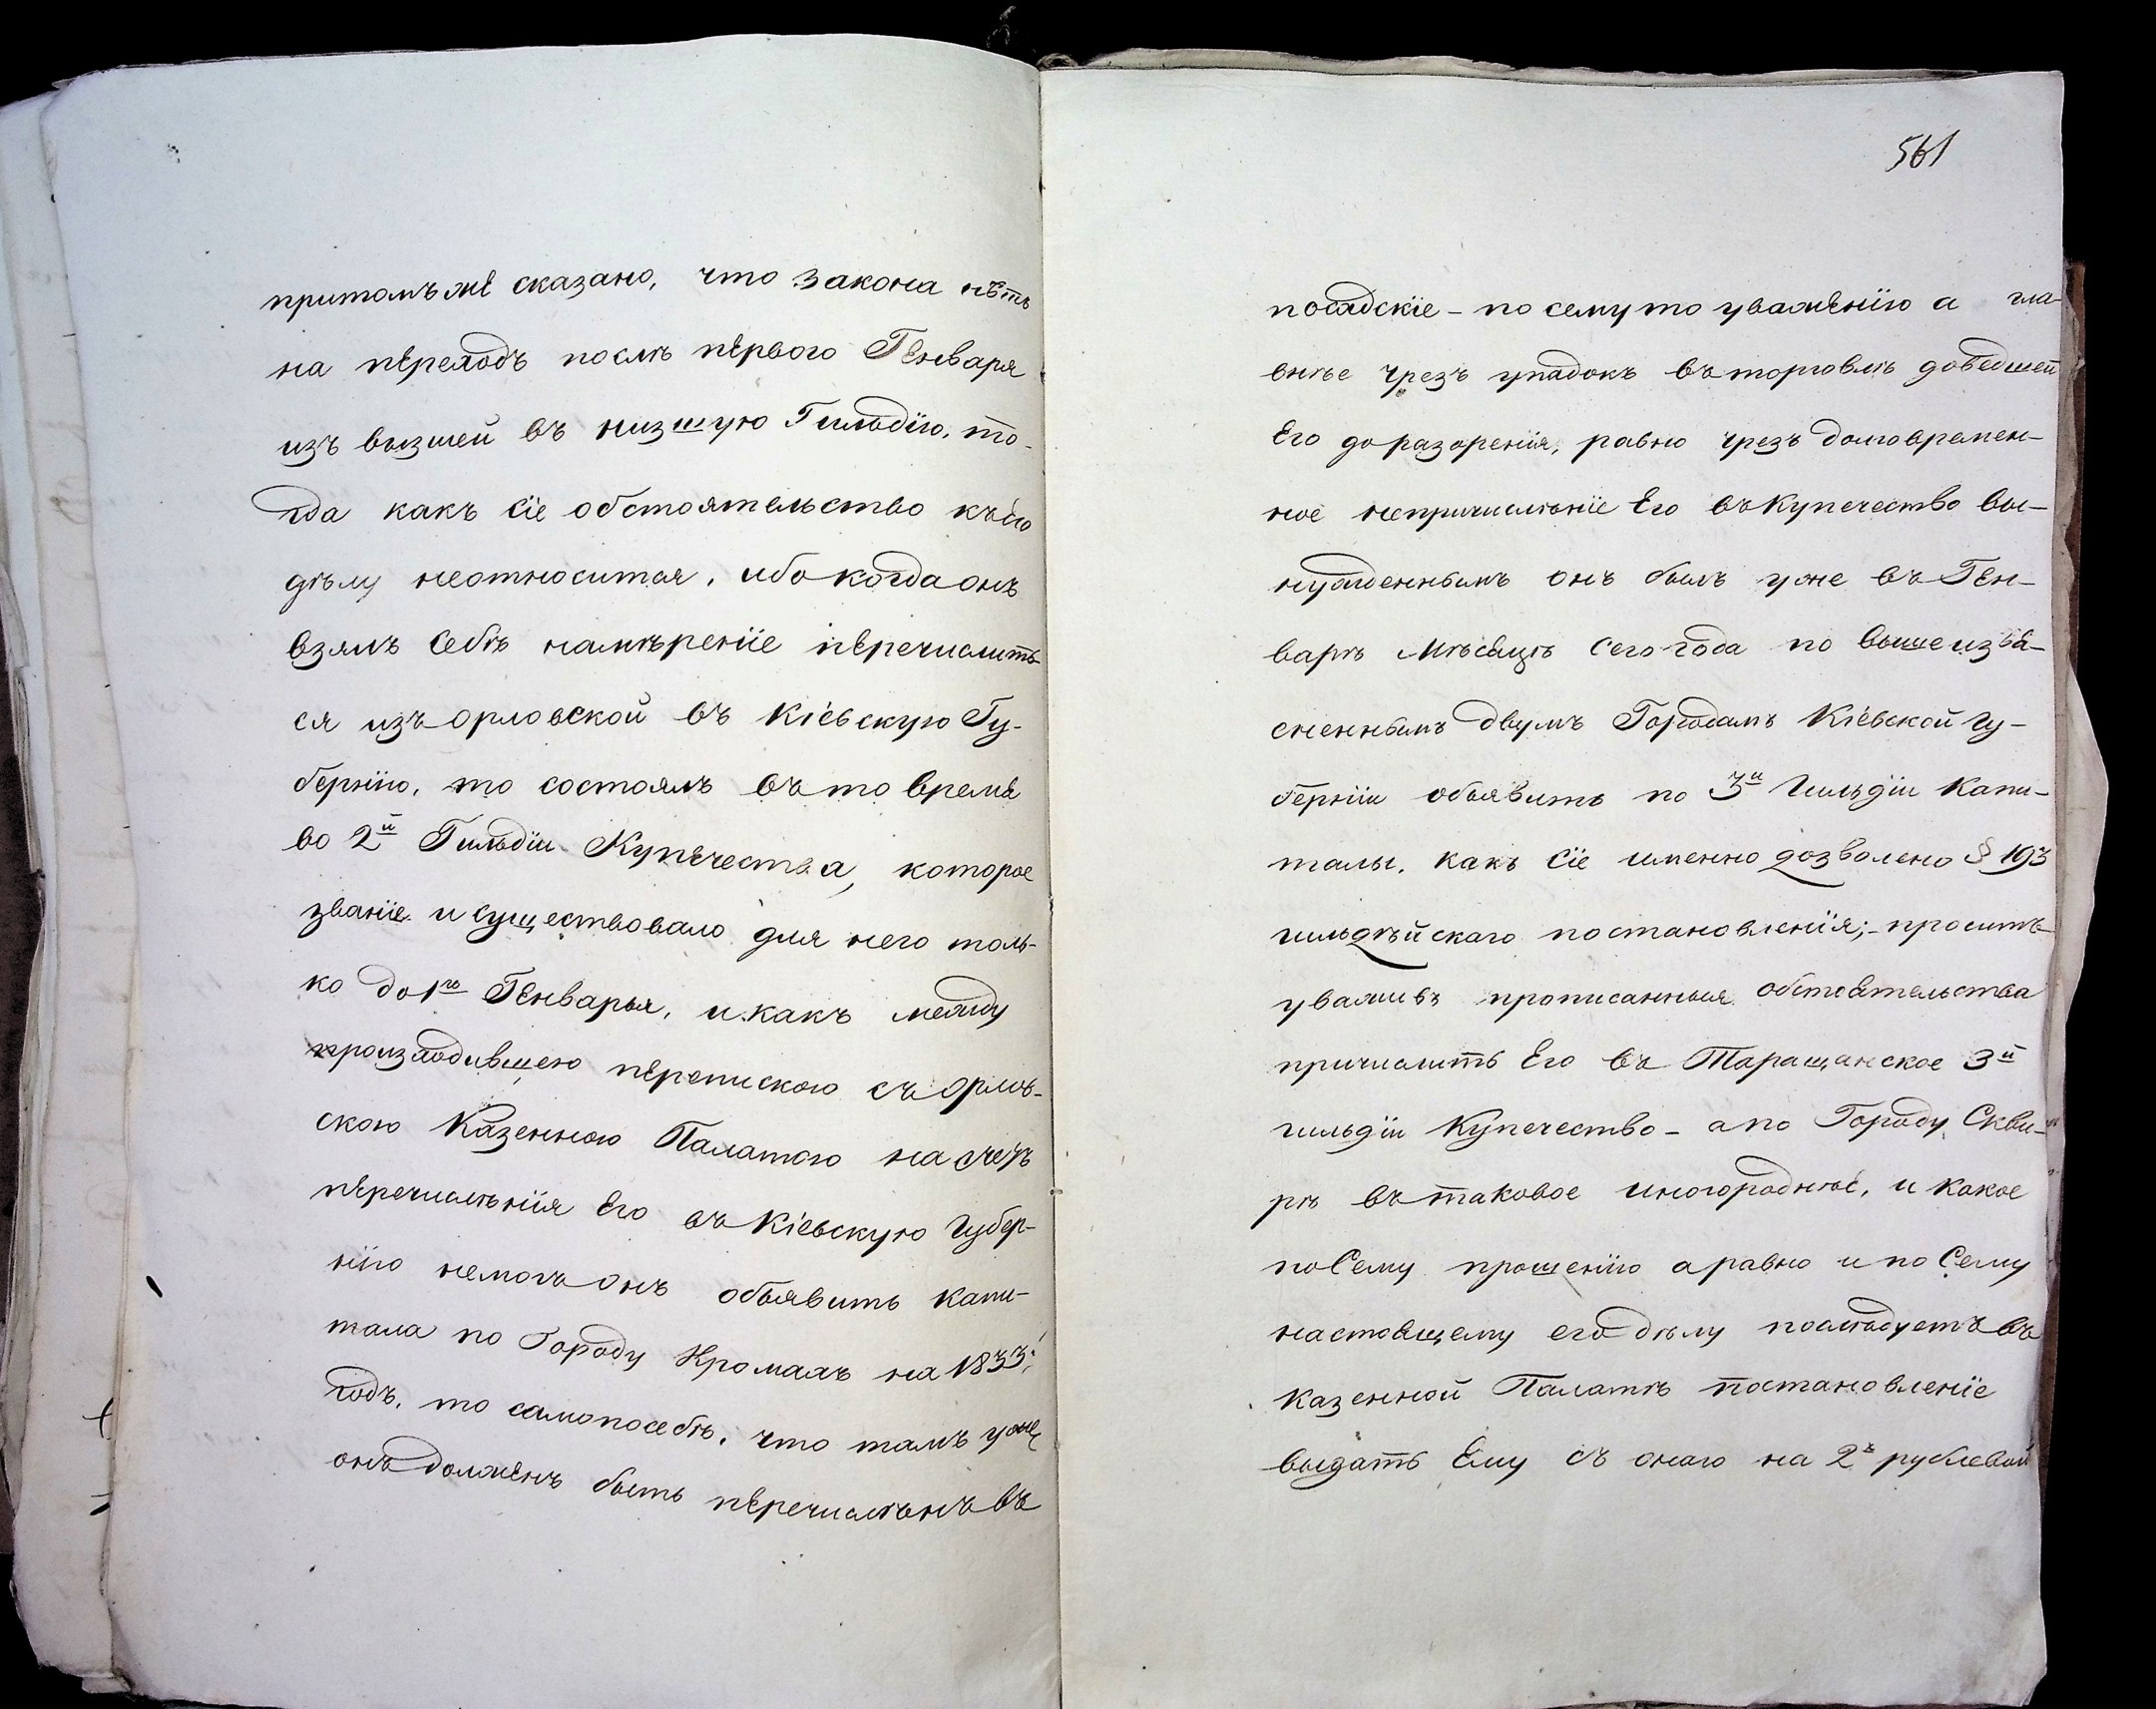 притомъ же сказано, что закона нѣтъ
на переходъ послѣ перваго Генваря
изъ вызшей въ низшую Гильдію, то-
гда какъ сіе обстоятельство къ его
дѣлу неотносится, ибо когда онъ
взялъ себѣ намѣреніе перечислить
ся изъ орловской въ Кіевскую Гу-
бернію, то состоялъ въ то время
во 2й Гильдіи Купечества, которое
званіе и существовало для него толь-
ко до 1го Генварья, и какъ между
произходившею перепискою съ орлов-
скою Казенною Палатою на счетъ
перечисленія Его въ Кіевскую Губер-
нію немогъ онъ объявить капи-
тала по Городу Кромахъ на 1833й
годъ, то само по себѣ, что тамъ уже
онъ долженъ быть перечисленъ въ
561
посадскіе - по сему то уваженію а гла-
внѣе чрезъ упадокъ въ торговлѣ доведшей
Его до разоренія, равно чрезъ долговремен-
ное непричисленіе Его въ Купечество вы-
нужденнымъ онъ былъ уже въ Ген-
варѣ мѣсяцѣ сего года по вышеизъя-
сненнымъ двумъ Городамъ Кіевской гу-
берніи объявить по 3й Гильдіи Капи-
талы, какъ сіе именно дозволено § 193
гильдѣйскаго постановленія; - просить
уваживъ прописанныя обстоятельства
причислить Его въ Таращанское 3й
гильдіи Купечество - а по Городу Скви-
рѣ въ таковое иногородное, и какое
по Сему прошенію а равно и по Сему
настоящему его дѣлу послѣдуетъ въ
казенной Палатѣ постановленіе
выдать Ему съ онаго на 2х рублевой